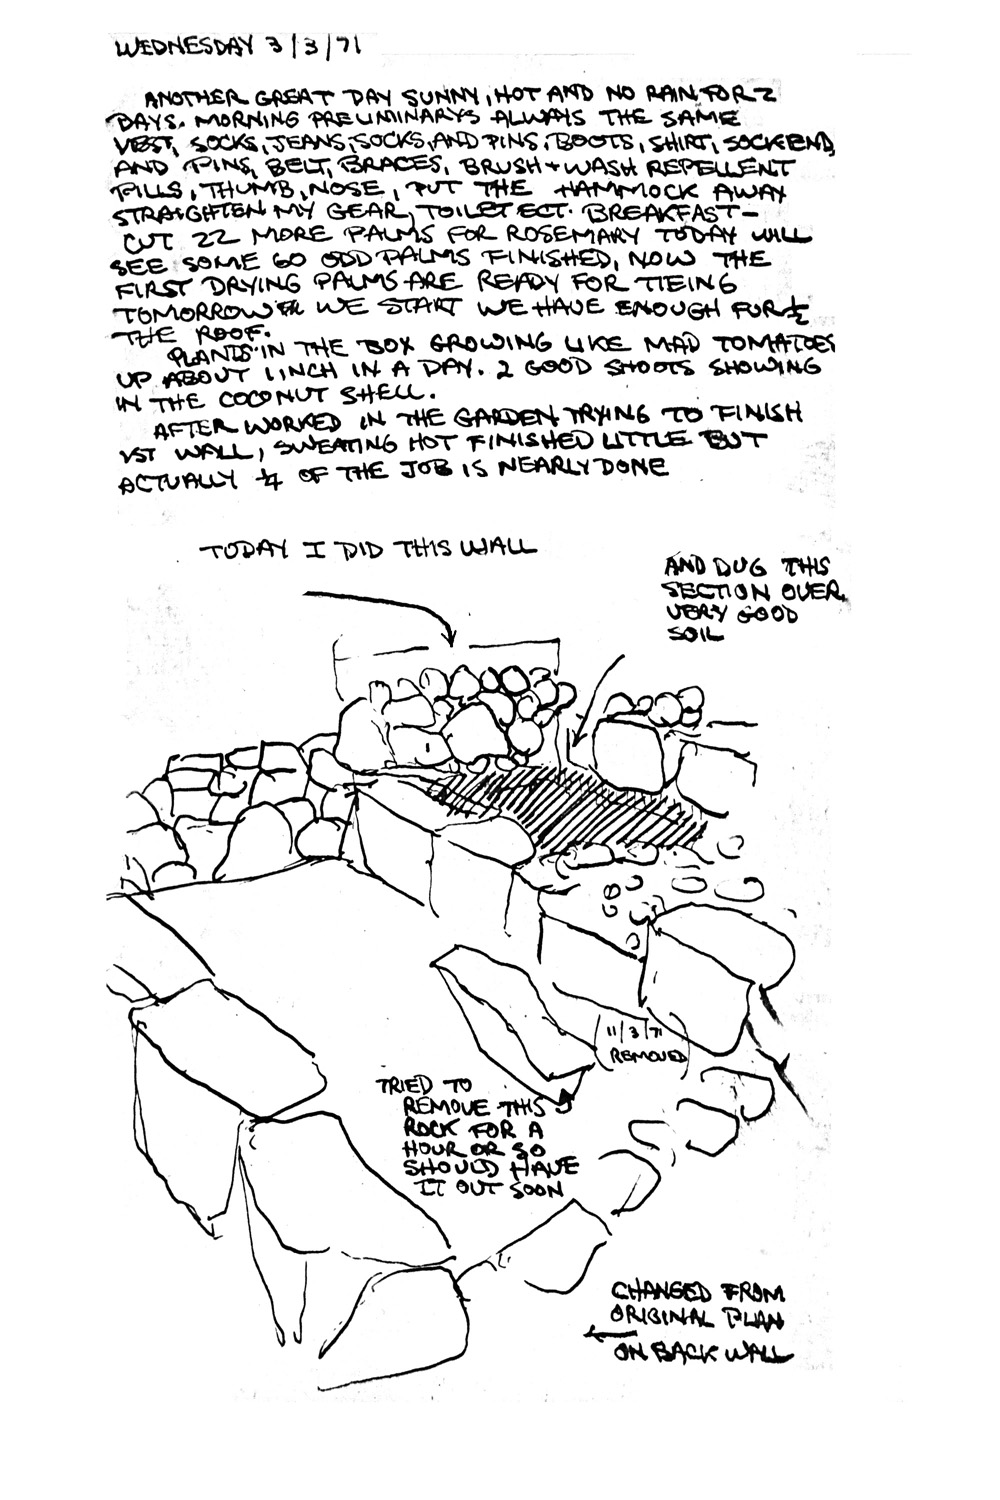 WEDNESDAY 3/3/71
ANOTHER GREAT DAY SUNNY, HOT AND NO RAIN FOR 2
DAYS. MORNING PRELIMINARYS ALWAYS THE SAME
VEST, SOCKS, JEANS, SOCKS, AND PINS, BOOTS, SHIRT, SOCKEND,
AND PINS, BELT, BRACES, BRUSH + WASH REPELLENT
PILLS, THUMB, NOSE, PUT THE HAMMOCK AWAY
STRAIGHTEN MY GEAR, TOILET ECT. BREAKFAST -
CUT 22 MORE PALMS FOR ROSEMARY TODAY WILL
SEE SOME 60 ODD PALMS FINISHED, NOW THE
FIRST DRYING PALMS ARE READY FOR TIEING
TOMORROW WE START WE HAVE ENOUGH FOR ½
THE ROOF.
PLANTS IN THE BOX GROWING LIKE MAD TOMATOES
UP ABOUT 1 INCH IN A DAY. 2 GOOD SHOOTS SHOWING
IN THE COCONUT SHELL.
AFTER WORKED IN THE GARDEN TRYING TO FINISH
1ST WALL, SWEATING HOT FINISHED LITTLE BUT
ACTUALLY ¼ OF THE JOB IS NEARLY DONE
TODAY I DID THIS WALL
AND DUG THIS
SECTION OVER,
VERY GOOD
SOIL
(11/3/71
REMOVED)
TRIED TO
REMOVE THIS
ROCK FOR A
HOUR OR SO
SHOULD HAVE
IT OUT SOON
CHANGED FROM
ORIGINAL PLAN
ON BACK WALL